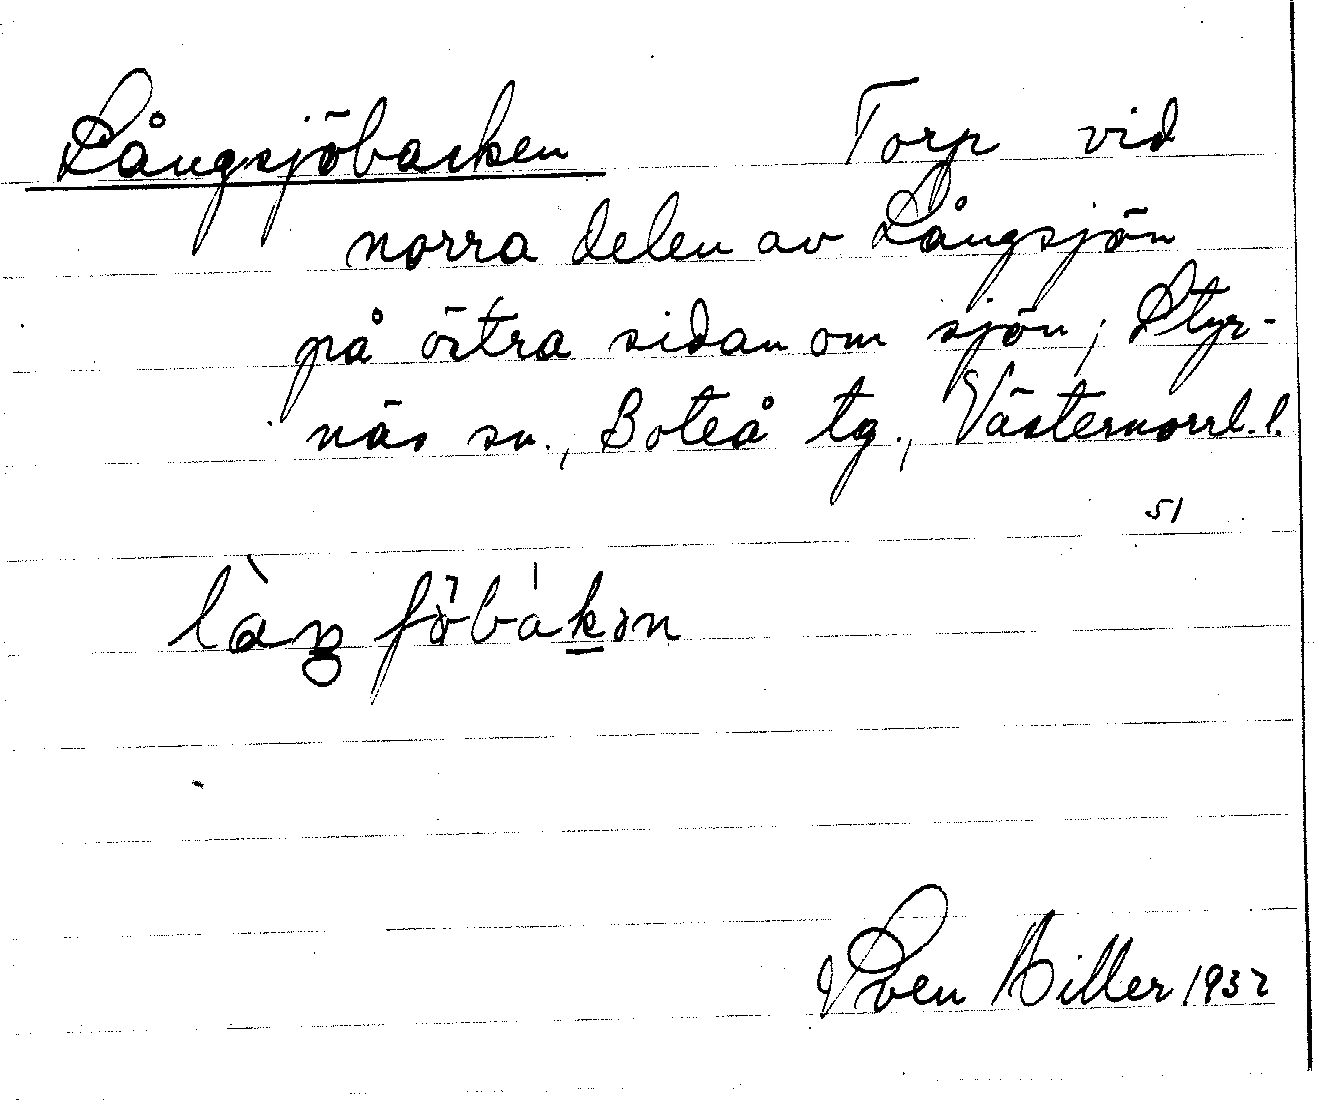 Långsjöbacken Torp vid
norra delen av Långsjön
på östra sidan om sjön; Styr-
näs sn., Boteå tg., Västernorrl. l.
51
Sven Hiller 1932